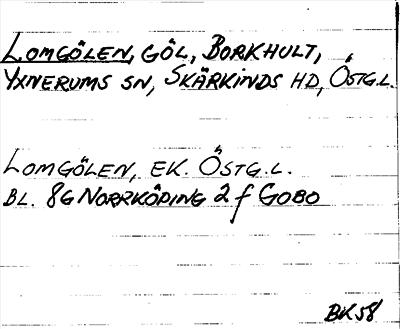 LOMGÖLEN, GÖL, BORKHULT,
YXNERUMS SN, SKÄRKINDS HD, ÖSTG.L.
LOMGÖLEN, EK. ÖSTG.L.
BL. 8G NORRKÖPING 2 f GOBO
BK58